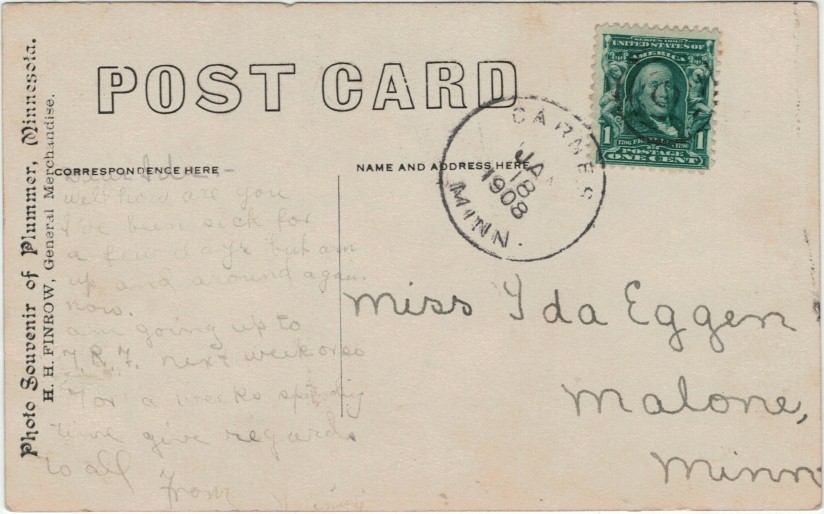 Photo Souvenir of Plummer, Minnesota.
H. H. FINROW, General Merchandise.
POST CARD
CORRESPONDENCE HERE
NAME AND ADDRESS HERE
SERIES 1902
UNITED STATES OF
AMERICA
1 1
FRANKLIN
POSTAGE
ONE CENT
CARNES
JA
18
1908
MINN.
Dear Ida -
well how are you
I've been sick for
a few days but am
up and around again
now.
am going up to
T.R.F. next week or so
for a weeks
time give regards
to all
From
Miss Ida Eggen
Malone,
Minn